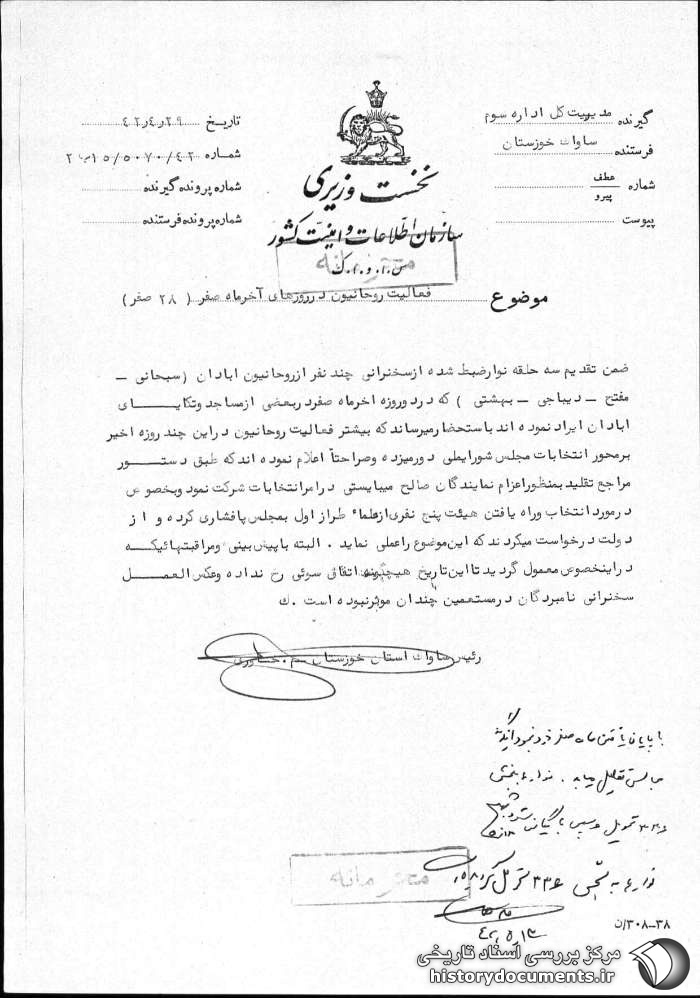 گیرنده مدیریت کل اداره سوم
فرستنده ساواک خوزستان
شماره عطف
پیرو
پیوست
تاریخ ۴۲٫۴٫۲۹
شماره
شماره پرونده گیرنده
شماره پرونده فرستنده
نخست وزیری
سازمان اطلاعات و امنیت کشور
س.ا.و.ا.ک
محرمانه
موضوع فعالیت روحانیون در روزهای آخرماه صفر (۲۸ صفر)
ضمن تقدیم سه حلقه نوار ضبط شده از سخنرانی چند نفر از روحانیون ابادان (سبحانی –
مفتح – دیباجی – بهشتی) که در دو روزه اخرماه صفر در بعضی از مساجد و تکایای
ابادان ایراد نموده اند باستحضار میرساند که بیشتر فعالیت روحانیون در این چند روزه اخیر
بر محور انتخابات مجلس شورایملی دور میزده و صراحتاً اعلام نموده اند که طبق دستور
مراجع تقلید بمنظور اعزام نمایندگان صالح میبایستی در امر انتخابات شرکت نمود و بخصوص
در مورد انتخاب و راه یافتن هیئت پنج نفری از علماء طراز اول بمجلس پافشاری کرده و از
دولت درخواست میکردند که این موضوع را عملی نماید. البته با پیش بینی و مراقبتهائیکه
در اینخصوص معمول گردید تا این تاریخ هیچگونه اتفاق سوئی رخ نداده و عکس العمل
سخنرانی نامبردگان در مستمعین چندان موثر نبوده است. ك
رئیس ساواک استان خوزستان
با پایان یافتن ماه صفر
مجالس تقلیل
محرمانه
۳۸–۳۰۸/ن
مرکز بررسی اسناد تاریخی
historydocuments.ir